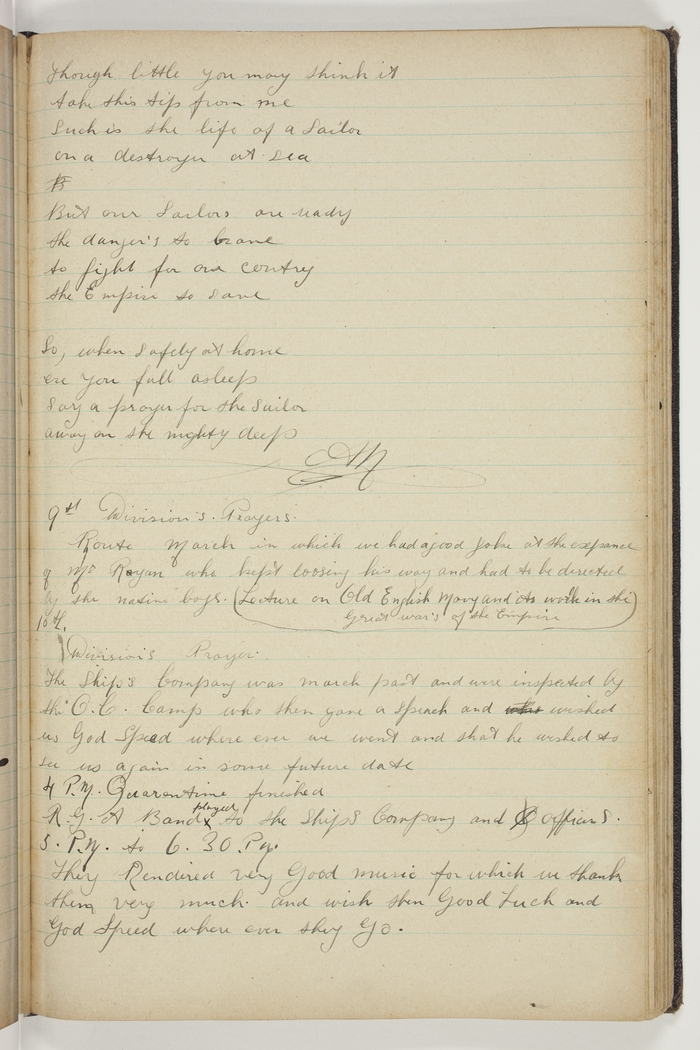 Though little you may think it
take this tip from me
Such is the life of a Sailor
on a destroyer at sea
But our Sailors are ready
the danger's to brave
to fight for our contry
the Empire to save
So, when Safely at home
ere you fall asleep
Say a prayer for the Sailor
away on the mighty deep
9th Division's. Prayers.
Route March in which we had a good joke at the expance
of Mr Rogan who kept loosing his way and had to be directed
by the native boys. (Lecture on Old English Navy and its work in the
Great war's of the Empire)
10th.
Division's Prayer.
The Ship's Company was march past and were inspected by
the O.C. Camp who then gave a speach and wished
us God Speed where ever we went and that he wished to
see us again in some future date
4 P.M. Quarentine finished
R.G.A Band played to the Ships Company and officers.
5. P.M. to 6.30. P.M.
They Rendired very Good music for which we thank
them very much. and wish them Good Luck and
God Speed where ever they Go.